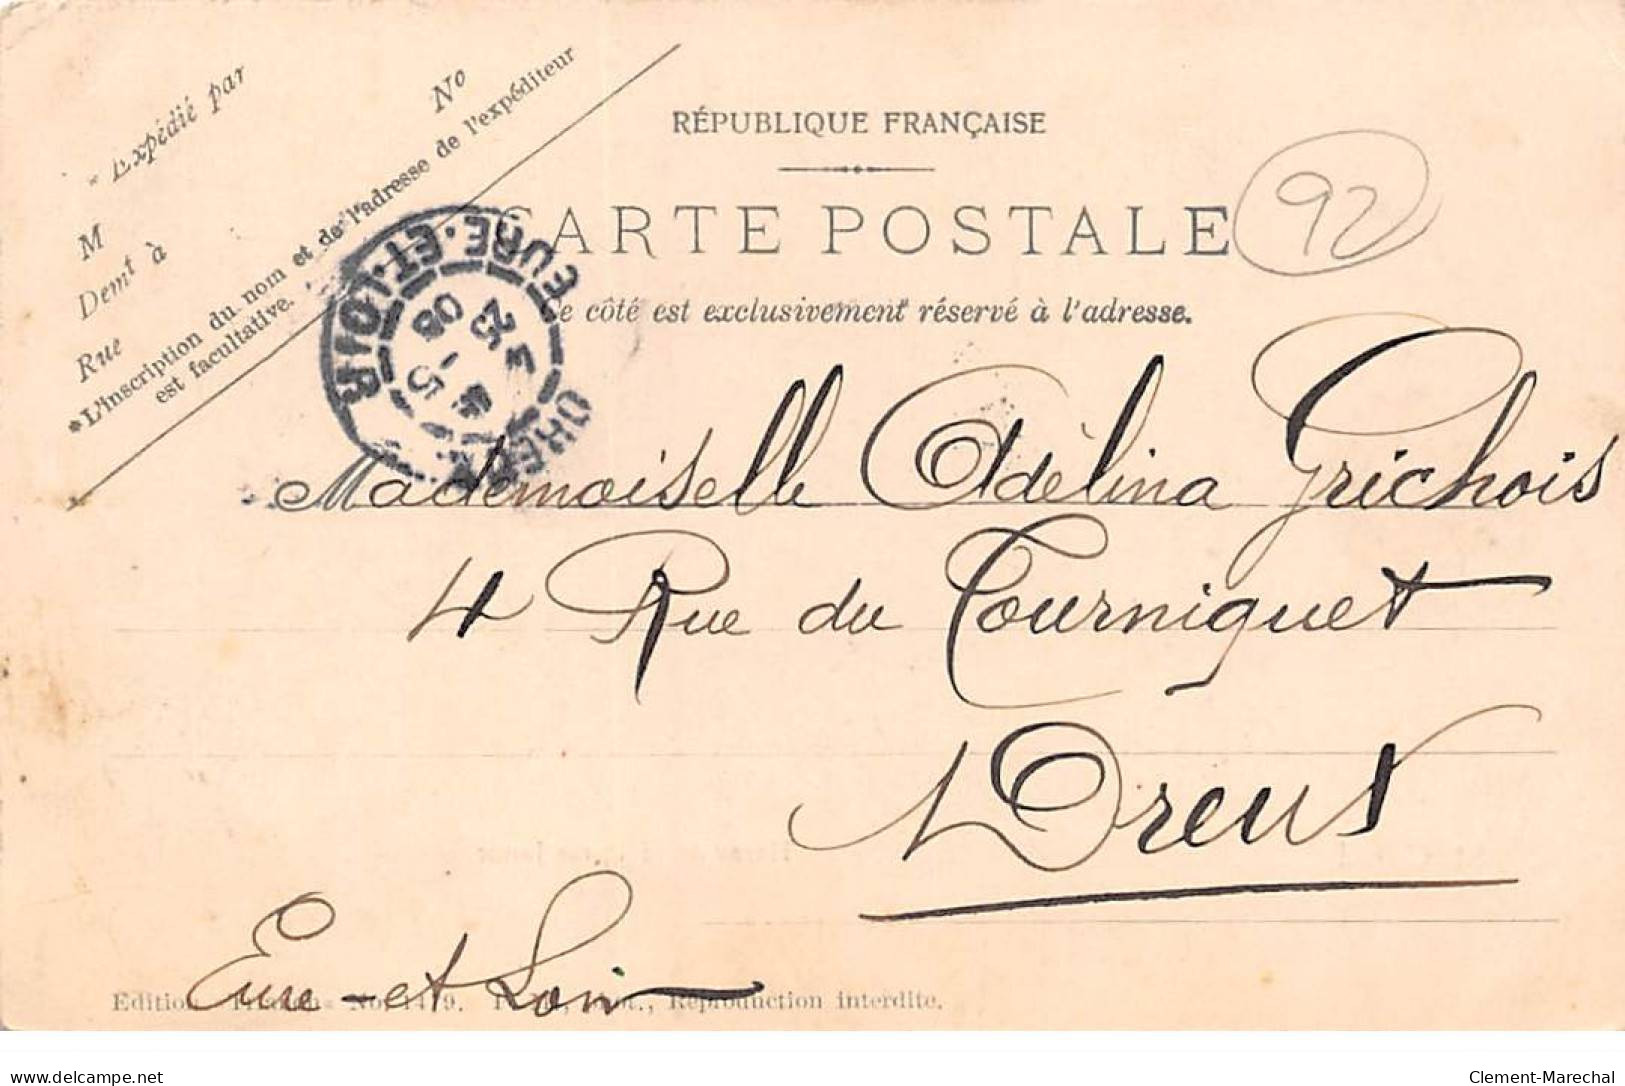 * Expédié par
No
M
Demt à
Rue
*L'inscription du nom et de l'adresse de l'expéditeur
est facultative.
RÉPUBLIQUE FRANÇAISE
CARTE POSTALE
92
Ce côté est exclusivement réservé à l'adresse.
EURE-ET-LOIR
DREUX
Mademoiselle Adélina Grichois
4 Rue du Tourniquet
Dreux
Eure-et Loir
Edition No. 1479. Reproduction interdite.
delcampe.net
Clement-Marechal